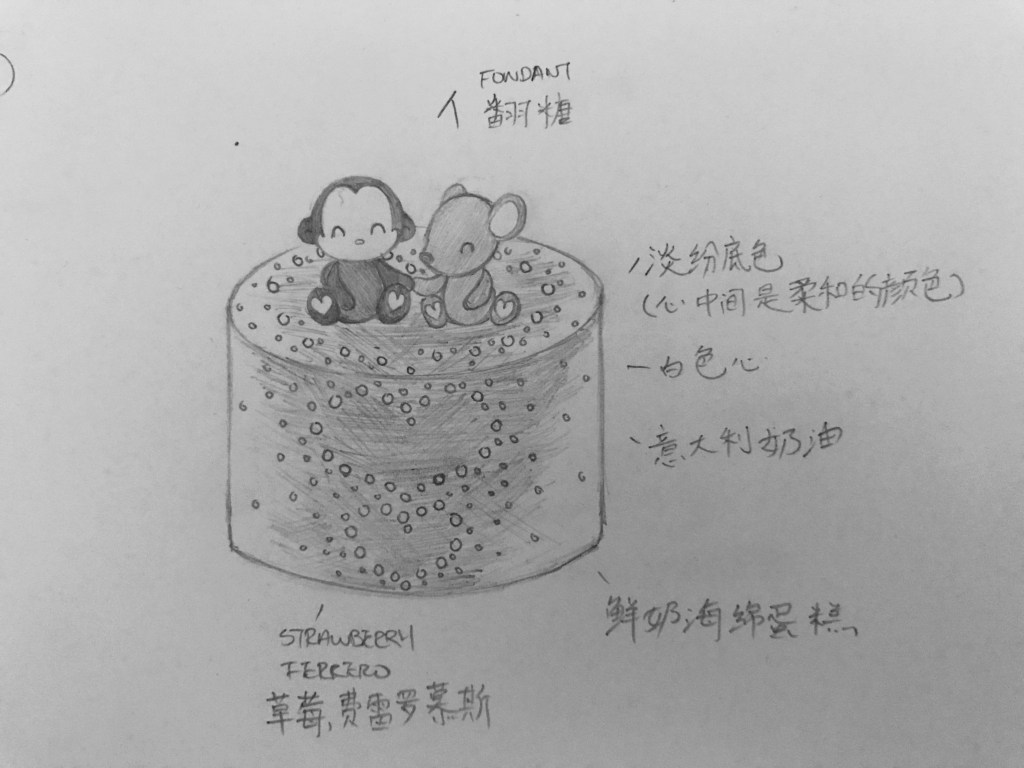 FONDANT
个 翻糖
淡纷底色
(心中间是柔和的颜色)
一白色心
意大利奶油
鲜奶海绵蛋糕
STRAWBERRY
FERRERO
草莓,费雷罗慕斯